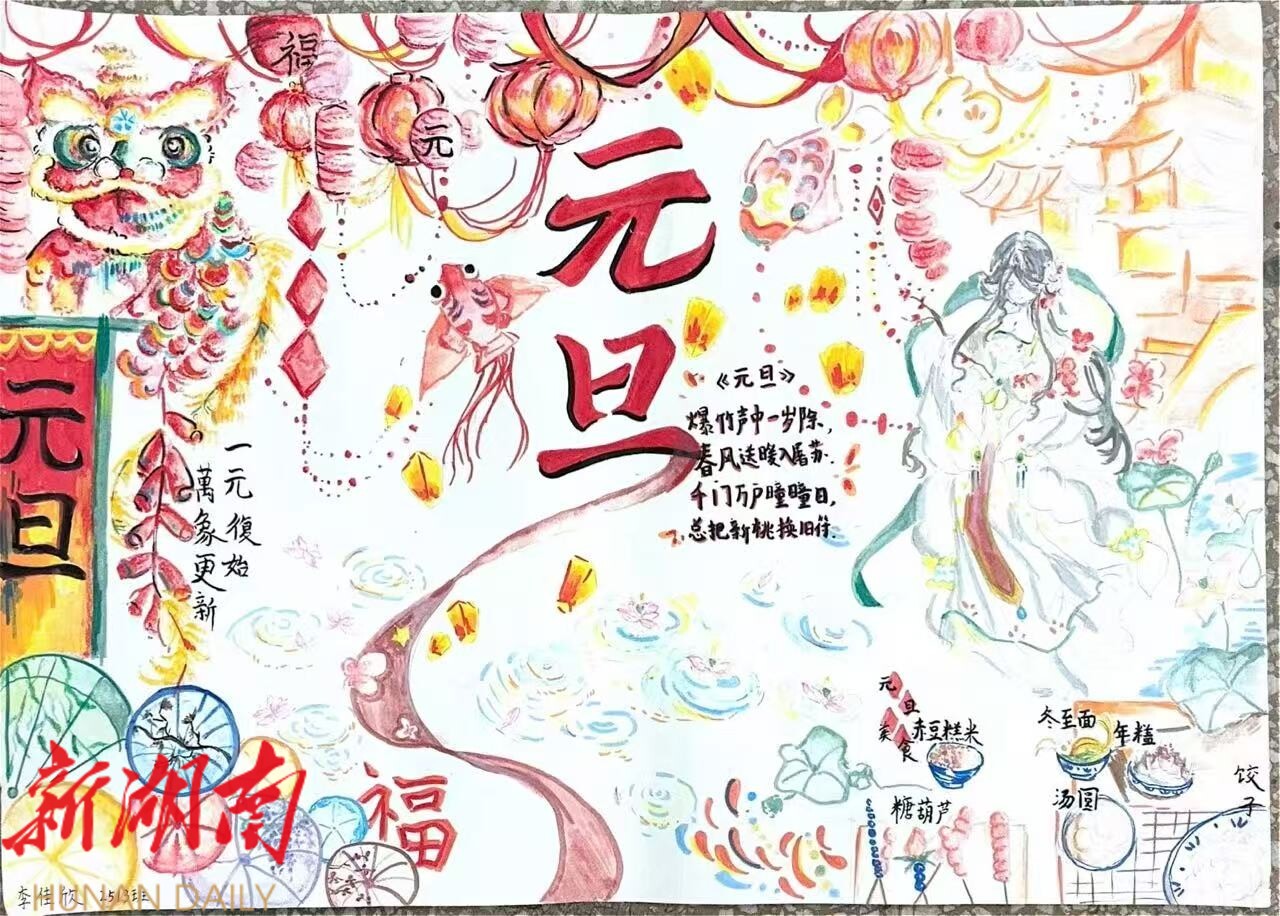 福
元
元
旦
元
旦
一元復始
萬象更新
《元旦》
爆竹声中一岁除,
春风送暖入屠苏.
千门万户曈曈日,
总把新桃换旧符.
元旦美食
赤豆糕米
冬至面
年糕
汤圆
饺子
糖葫芦
福
新湖南
HUNAN DAILY
李佳欣 2513班